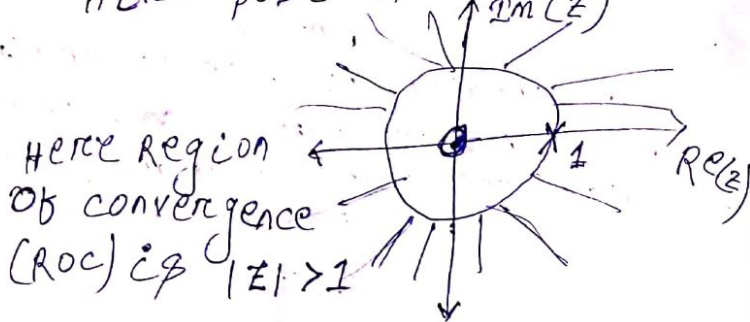 Im(z)
Here Region
Of convergence
(ROC) is |Z| >1
1
Re(z)